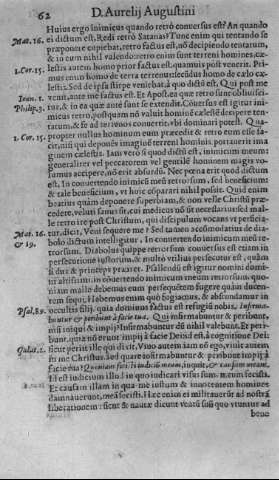 62 D. Aurelij Augustini
Huius ergo inimicus quando retrò conuersus est? An quando
Mat. 16. ei dictum est, Redi retrò Satanas? Tunc enim qui tentando se
præponere cupiebat, retro factus est, nõ decipiendo tentatum,
& in eum nihil valendo. retro enim sunt terreni homines. cæ-
1. Cor. 15. lestis autem homo prior factus est, quamuis post venerit. Pri-
mus enim homo de terra terrenus: secũdus homo de calo cæ-
lestis. Sed de ipsa stirpe veniebat à quo dictũ est, Qui post me
Ioan. 1. venit, ante me factus est. Et Apostolus quæ retro sunt obliuisci-
Philip. 3. tur, & in ea quæ ante sunt se extendit. Conuersus est igitur ini-
micus retro, postquam nõ valuit hominẽ cælestẽ decipere ten-
tatum, & se ad terrenos conuertit, vbi dominari potest. Qua-
1. Cor. 15. propter nullus hominum eum præcedit & retro eum esse fa-
cit, nisi qui deponẽs imaginẽ terreni hominis portauerit ima-
ginem cælestis. Iam vero si quod dictũ est, inimicum meum
generaliter vel peccatorem vel gentilẽ hominem magis vo-
lumus accipere, nõ erit absurdũ. Nec pœna erit quod dictum
est, In conuertendo inimicũ meũ retrorsum, sed beneficium
& tale beneficium, vt huic cõparari nihil possit. Quid enim
beatius quàm deponere superbiam, & non velle Christũ præ-
cedere,
Mat. 16. tur, dicit, Veni sequere me? Sed tamen accõmodatius de dia-
& 19. bolo dictum intelligitur, In conuertendo inimicum meũ re-
trorsum. Diabolus quippe retrorsum conuersus est etiam in
persecutione iustorum, & multò vtilius persecutor est, quàm
si dux & princeps præiret. Psallendũ est igitur nomini domi-
ni altissimi, in cõuertendo inimicum meum retrorsum. quo-
niam malle debemus eum persequẽtem fugere quàm ducen-
tem sequi. Habemus enim quò fugiamus, & abscondamur in
occultis filij. quia dominus factus est refugiũ nobis. Infirma-
Psal. 89. buntur & peribunt à facie tua. Qui infirmabuntur & peribunt,
nisi iniqui & impij? Infirmabuntur dũ nihil valebunt. Et peri-
bunt. quia nõ erunt impij à facie Dei. id est, à cognitione Dei:
Galat. 2. sicut perijt ille qui dicit, Viuo autem iam nõ ego, viuit autem
in me Christus. Sed quare infirmabuntur & peribunt impij à
facie tua? Quoniam fecisti iudiciũ meum, inquit, & causam meam.
Id est iudicium illud in quo iudicari visus sum, meum fecisti.
Et causam illam in qua me iustum & innocentem homines
damnauerunt, meã fecisti. Hæc enim ei militauerũt ad nostrã
liberationem: sicut & nautæ dicunt ventũ suũ quo vtuntur ad
bene